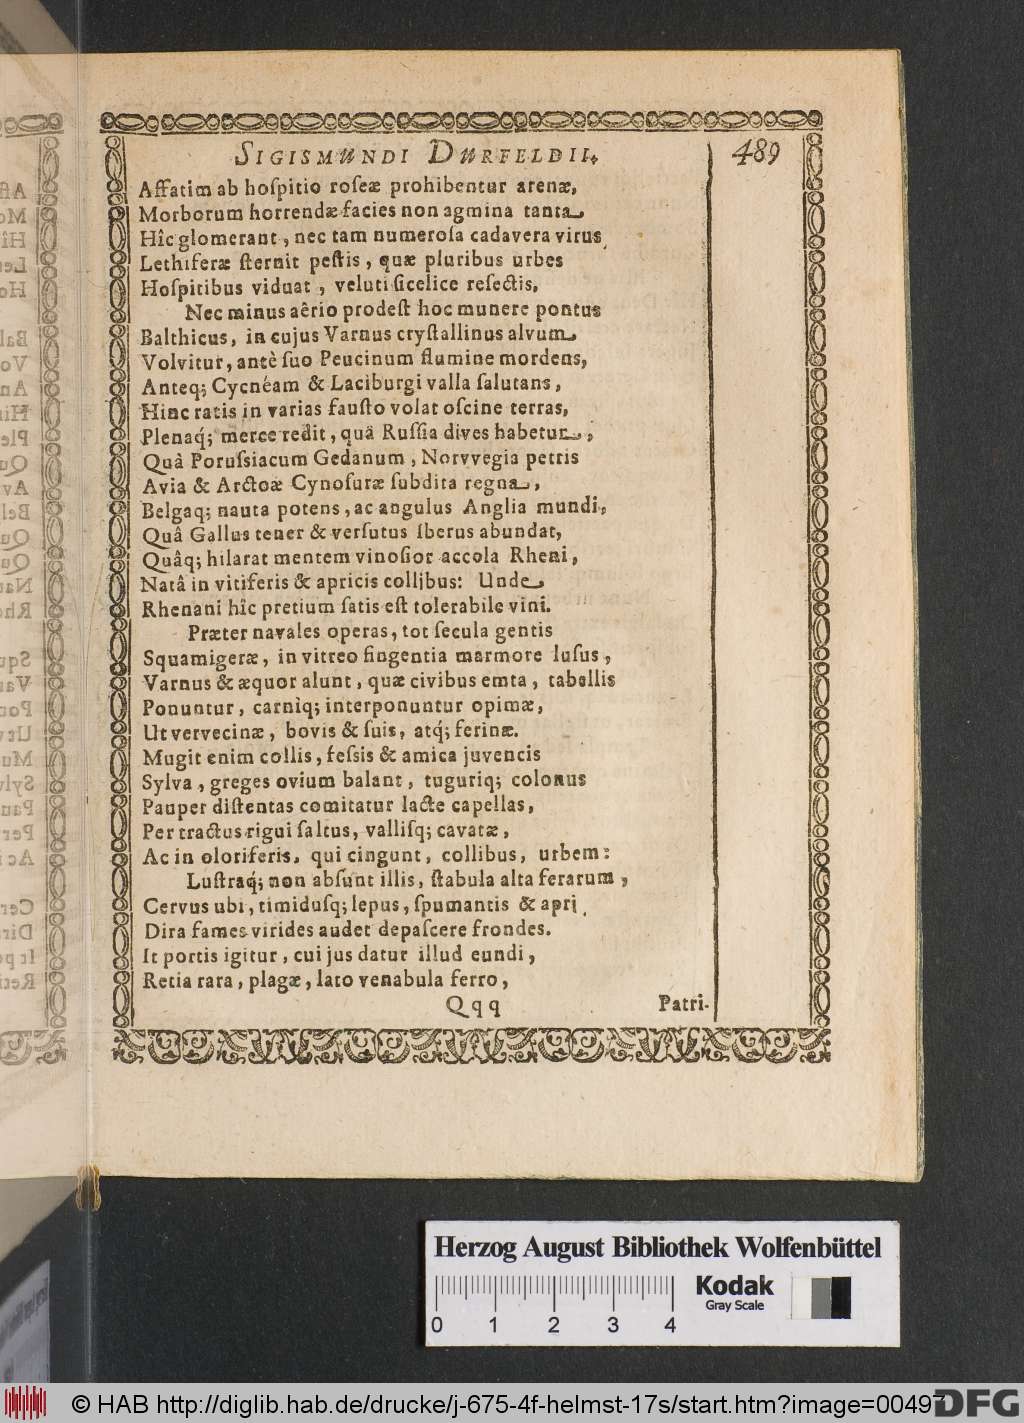 SIGISMUNDI DURFELDII.
489
Affatim ab hoſpitio roſeæ prohibentur arenæ,
Morborum horrendæ facies non agmina tanta
Hîc glomerant, nec tam numeroſa cadavera virus
Lethiferæ ſternit peſtis, quæ pluribus urbes
Hoſpitibus viduat, veluti ſicelice reſectis.
Nec minus aêrio prodeſt hoc munere pontus
Balthicus, in cujus Varnus cryſtallinus alvum
Volvitur, antè ſuo Peucinum flumine mordens,
Anteq; Cycnéam & Laciburgi valla ſalutans,
Hinc ratis in varias fauſto volat oſcine terras,
Plenaq́; merce redit, quâ Ruſſia dives habetur,
Quà Poruſsiacum Gedanum, Norvvegia petris
Avia & Arctoæ Cynoſuræ ſubdita regna,
Belgaq; nauta potens, ac angulus Anglia mundi,
Quâ Gallus tener & verſutus Iberus abundat,
Quâq; hilarat mentem vinoſior accola Rheni,
Natâ in vitiferis & apricis collibus: Unde
Rhenani hîc pretium ſatis eſt tolerabile vini.
Præter navales operas, tot ſecula gentis
Squamigeræ, in vitreo fingentia marmore luſus,
Varnus & æquor alunt, quæ civibus emta, tabellis
Ponuntur, carniq; interponuntur opimæ,
Ut vervecinæ, bovis & ſuis, atq́; ferinæ.
Mugit enim collis, feſsis & amica juvencis
Sylva, greges ovium balant, tuguriq; colonus
Pauper diſtentas comitatur lacte capellas,
Per tractus rigui ſaltus, vallisq; cavatæ,
Ac in oloriferis, qui cingunt, collibus, urbem:
Luſtraq́; non abſunt illis, ſtabula alta ferarum,
Cervus ubi, timiduſq; lepus, ſpumantis & apri
Dira fames virides audet depaſcere frondes.
It portis igitur, cui jus datur illud eundi,
Retia rara, plagæ, lato venabula ferro,
Qqq
Patri-
Herzog August Bibliothek Wolfenbüttel
Kodak
Gray Scale
0 1 2 3 4
© HAB http://diglib.hab.de/drucke/j-675-4f-helmst-17s/start.htm?image=00497
DFG